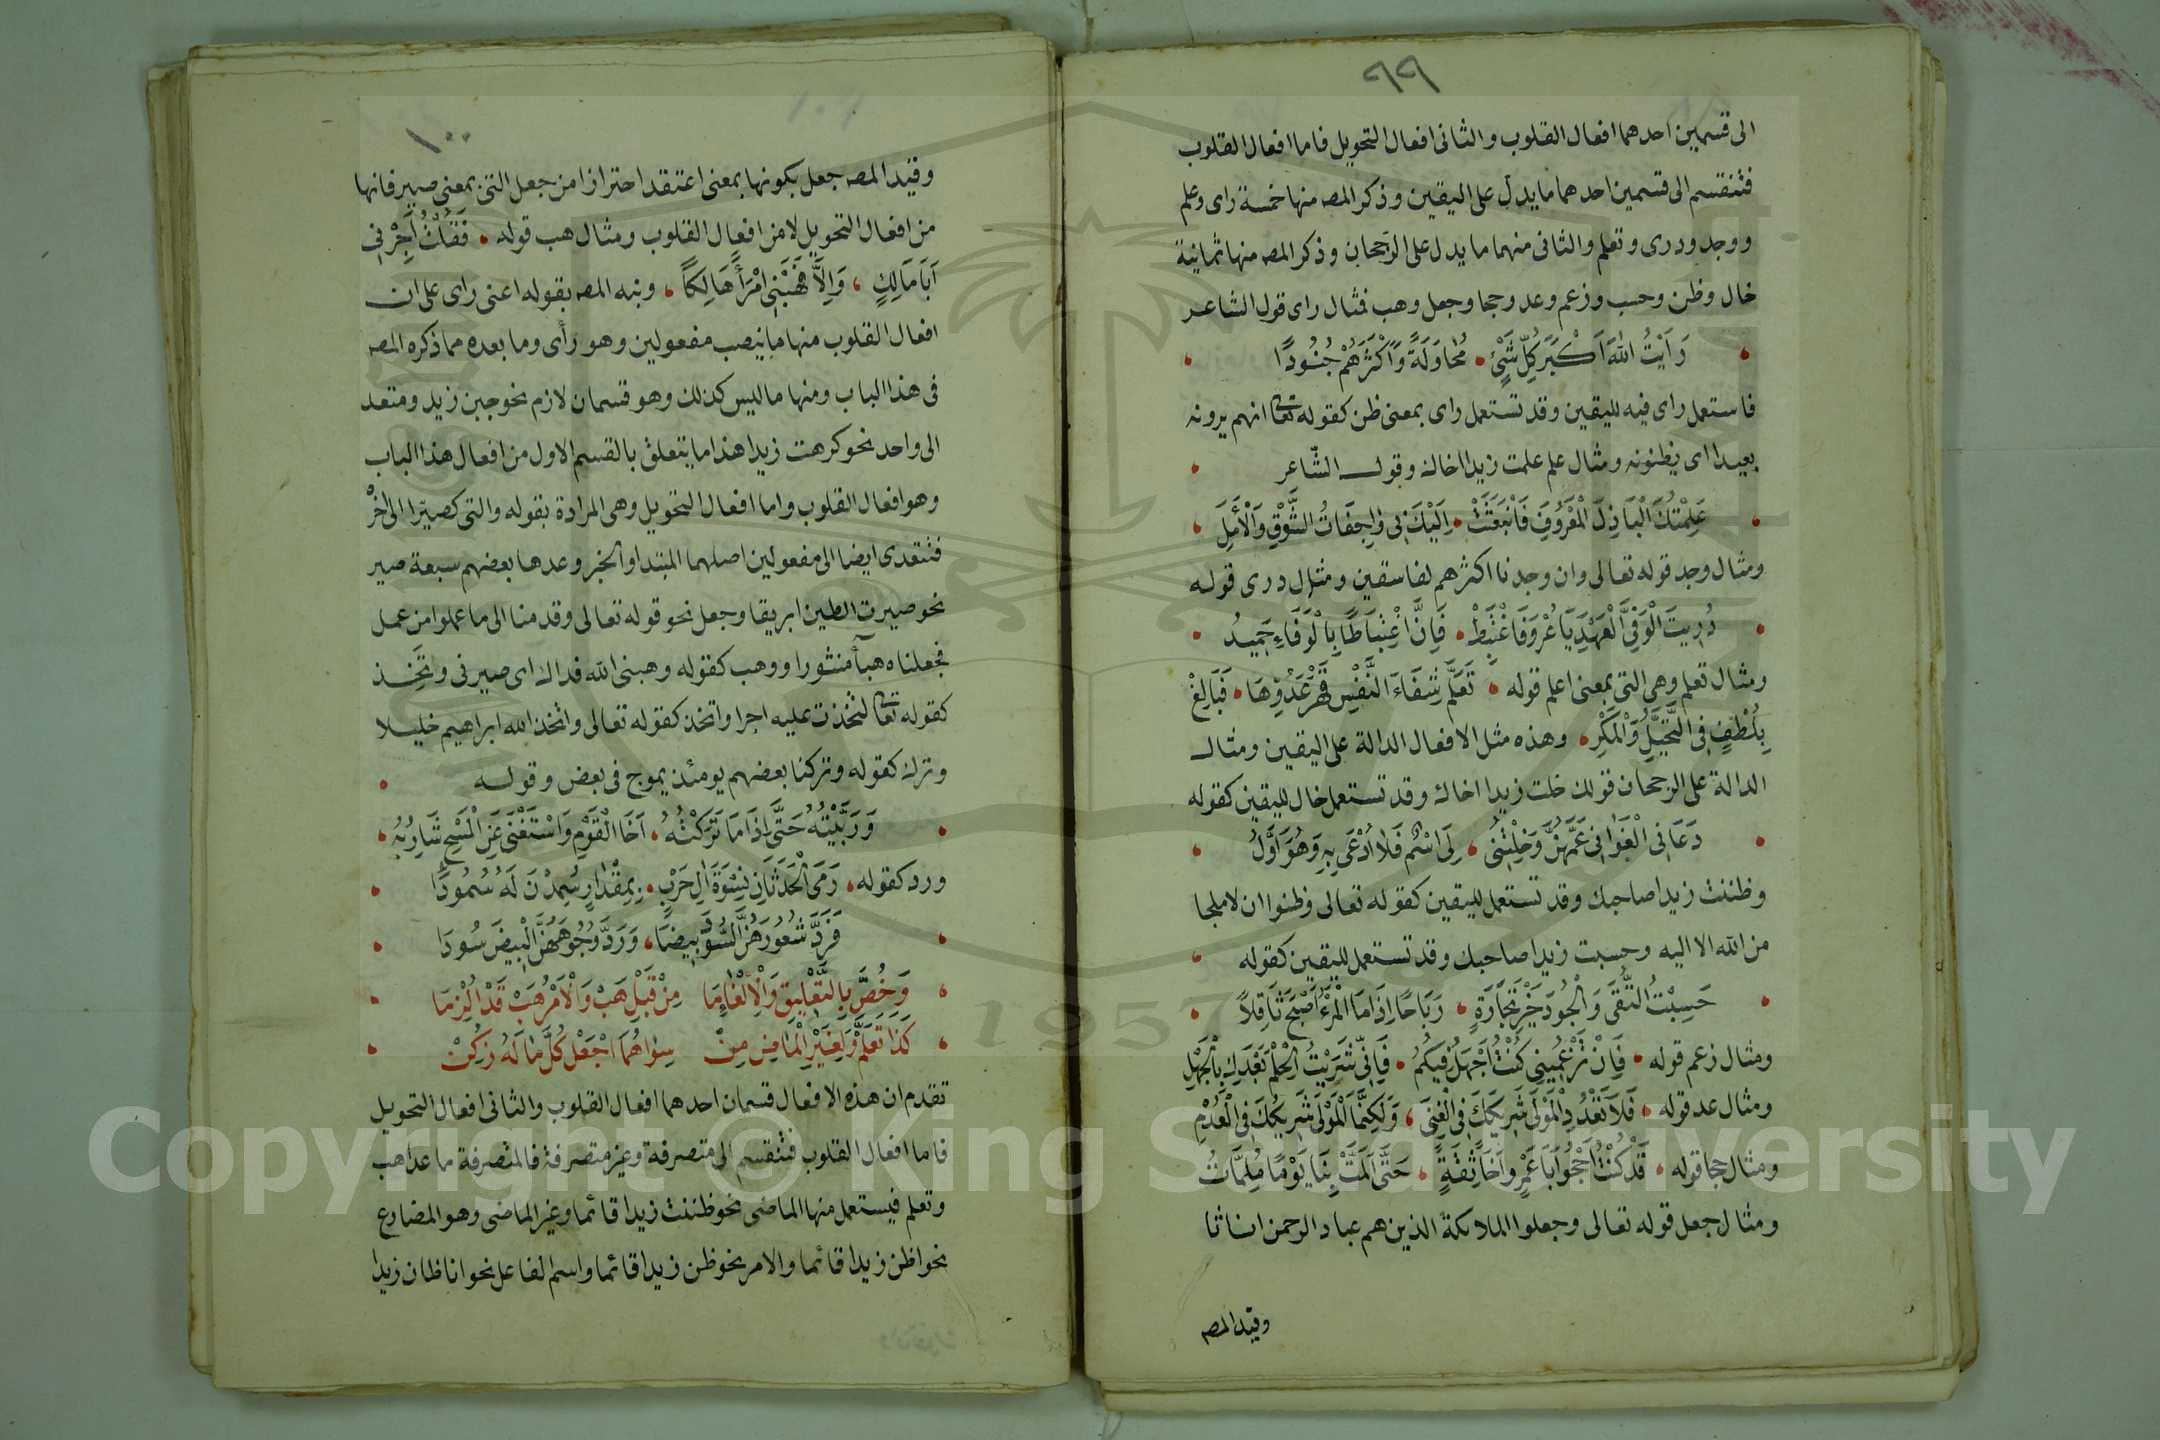 ٩٩
الى قسمين احدهما افعال القلوب والثانى افعال التحويل فاما افعال القلوب
فتنقسم الى قسمين احدهما ما يدل على اليقين وذكر المصه منها خمسة راى وعلم
ووجد ودرى وتعلم والثانى منهما ما يدل على الرَجحان وذكر المصه منها ثمانية
خال وظن وحسب وزعم وعد وحجا وجعل وهب فمثال راى قول الشاعر
رَاَيْتُ اللهَ اَكْبَرَ كُلِّ شَيْءٍ • مُحَاوَلَةً وَاَكْثَرَهُمْ جُنُودًا
فاستعمل راى فيه لليقين وقد تستعمل راى بمعنى ظن كقوله تعا انهم يرونه
بعيدا اى يظنونه ومثال علم علمت زيدا اخاك وقول الشّاعر
عَلِمْتُكَ الْبَاذِلَ الْمَعْرُوفَ فَانْبَعَثَتْ • اِلَيْكَ بِى وَاجِفَاتُ الشَّوْقِ وَالْاَمَلِ
ومثال وجد قوله تعالى وان وجدنا اكثرهم لفاسقين ومثال درى قوله
دُرِيتَ الْوَفِىَّ الْعَهْدِ يَا عُرْوَ فَاغْتَبِطْ • فَاِنَّ اغْتِبَاطًا بِالْوَفَاءِ حَمِيدُ
ومثال تعلم وهى التى بمعنى اعلم قوله • تَعَلَّمْ شِفَاءَ النَّفْسِ قَهْرَ عَدُوِّهَا • فَبَالِغْ
بِلُطْفٍ فِى التَّحَيُّلِ وَالْمَكْرِ • وهذه مثل الافعال الدالة على اليقين ومثال
الدالة على الرجحان قولك خلت زيدا اخاك وقد تستعمل خال لليقين كقوله
دَعَانِى الْغَوَانِى عَمَّهُنَّ وَخِلْتُنِى • لِىَ اسْمٌ فَلَا اُدْعَى بِهِ وَهُوَ اَوَّلُ
وظننت زيدا صاحبك وقد تستعمل لليقين كقوله تعالى وظنوا ان لا ملجا
من الله الا اليه وحسبت زيدا صاحبك وقد تستعمل لليقين كقوله
حَسِبْتُ التُّقَى وَالْجُودَ خَيْرَ تِجَارَةٍ • رَبَاحًا اِذَا مَا الْمَرْءُ اَصْبَحَ ثَاقِلًا
ومثال زعم قوله • فَاِنْ تَزْعُمِينِى كُنْتُ اَجْهَلُ فِيكُمُ • فَاِنِّى شَرَيْتُ الْحِلْمَ بَعْدَكِ بِالْجَهْلِ
ومثال عد قوله • فَلَا تَعْدُدِ الْمَوْلَى شَرِيكَكَ فِى الْغِنَى • وَلَكِنَّمَا الْمَوْلَى شَرِيكُكَ فِى الْعُدْمِ
ومثال حجا قوله • قَدْ كُنْتُ اَحْجُو اَبَا عَمْرٍو اَخَا ثِقَةٍ • حَتَّى اَلَمَّتْ بِنَا يَوْمًا مُلِمَّاتُ
ومثال جعل قوله تعالى وجعلوا الملائكة الذين هم عباد الرحمن اناثا
وقيد المصه
١٠٠
وقيد المصه جعل بكونها بمعنى اعتقد احترازا من جعل التى بمعنى صير فانها
من افعال التحويل لا من افعال القلوب ومثال هب قوله • فَقُلْتُ اَجِرْنِى
اَبَا مَالِكٍ • وَاِلَّا فَهَبْنِى امْرَأً هَالِكًا • ونبه المصه بقوله اعنى راى على ان
افعال القلوب منها ما ينصب مفعولين وهو رأى وما بعده مما ذكره المصه
فى هذا الباب ومنها ما ليس كذلك وهو قسمان لازم نحو جبن زيد ومتعد
الى واحد نحو كرهت زيدا هذا ما يتعلق بالقسم الاول من افعال هذا الباب
وهو افعال القلوب واما افعال التحويل وهى المرادة بقوله والتى كصيّرا الى اخره
فتتعدى ايضا الى مفعولين اصلهما المبتدا والخبر وعدها بعضهم سبعة صير
نحو صيرت الطين ابريقا وجعل نحو قوله تعالى وقدمنا الى ما عملوا من عمل
فجعلناه هبآ منثورا ووهب كقوله وهبنى الله فداك اى صيرنى وتَخِذ
كقوله تعا لتخذت عليه اجرا واتخذ كقوله تعالى واتخذ الله ابراهيم خليلا
وترك كقوله وتركنا بعضهم يومئذ يموج فى بعض وقوله
وَرَبَّيْتُهُ حَتَّى اِذَا مَا تَرَكْتُهُ • اَخَا الْقَوْمِ وَاسْتَغْنَى عَنِ الْمَسْحِ شَارِبُهُ
ورد كقوله • رَمَى الْحَدَثَانِ نِسْوَةَ اٰلِ حَرْبٍ • بِمِقْدَارٍ سَمِدْنَ لَهُ سُمُودًا
فَرَدَّ شُعُورَهُنَّ السُّودَ بِيضًا • وَرَدَّ وُجُوهَهُنَّ الْبِيضَ سُودَا
وَخُصَّ بِالتَّعْلِيقِ وَالْاِلْغَاءِ مَا مِنْ قَبْلِ هَبْ وَالْاَمْرُ هَبْ قَدْ اُلْزِمَا
كَذَا تَعَلَّمْ وَلِغَيْرِ الْمَاضِ مِنْ سِوَاهُمَا اجْعَلْ كُلَّ مَا لَهُ زُكِنْ
تقدم ان هذه الافعال قسمان احدهما افعال القلوب والثانى افعال التحويل
فاما افعال القلوب فتنقسم الى متصرفة وغير متصرفة فالمتصرفة ما عدا هب
وتعلم فيستعمل منها الماضى نحو ظننت زيدا قائما وغير الماضى وهو المضارع
نحو اظن زيدا قائما والامر نحو ظن زيدا قائما واسم الفاعل نحو انا ظان زيدا
1957
Copyright © King Saud University